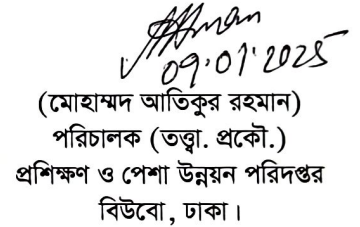 09.01.2025
(মোহাম্মদ আতিকুর রহমান)
পরিচালক (তত্ত্বা. প্রকৌ.)
প্রশিক্ষণ ও পেশা উন্নয়ন পরিদপ্তর
বিউবো, ঢাকা।